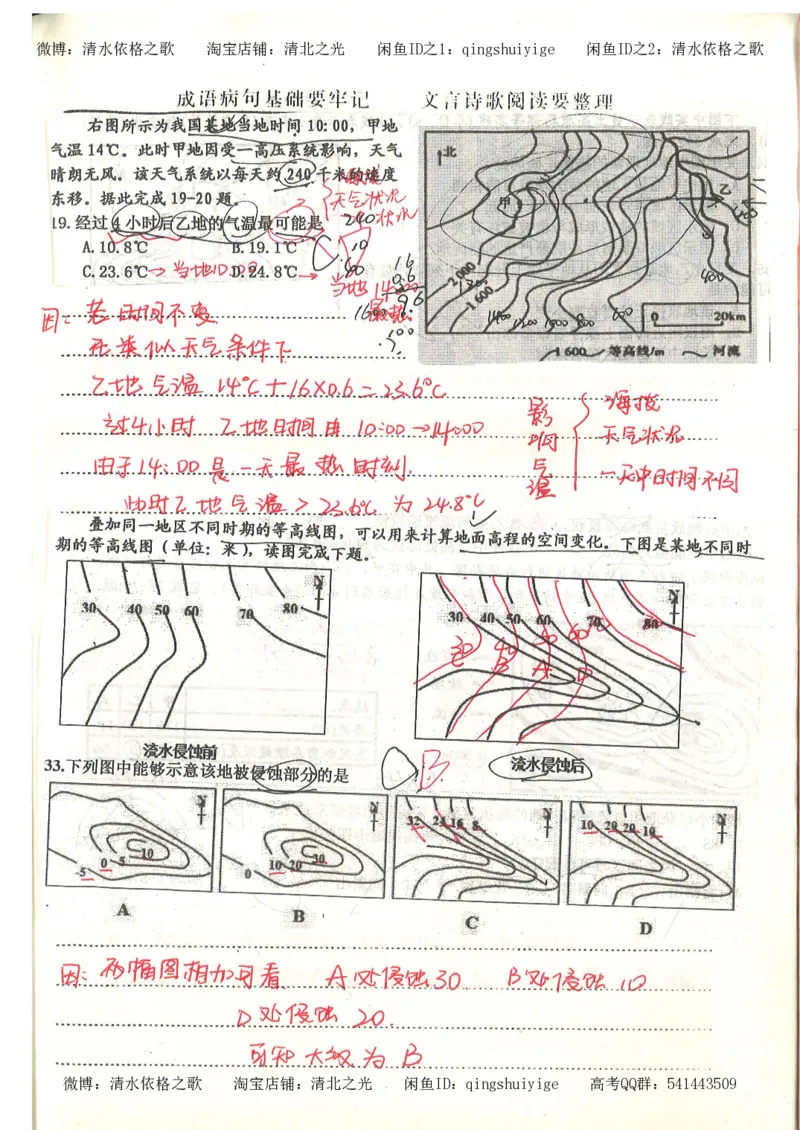 微博：清水依格之歌 淘宝店铺：清北之光 闲鱼ID之1：qingshuiyige 闲鱼ID之2：清水依格之歌
成语病句基础要牢记 文言诗歌阅读要整理
右图所示为我国某地当地时间 10:00，甲地
气温 14℃。此时甲地因受一高压系统影响，天气
晴朗无风。该天气系统以每天约 240 千米的速度
东移。据此完成 19-20 题。
海拔
天气状况
状水
19. 经过 4 小时后乙地的气温最可能是
240
A. 10.8℃ B. 19.1℃
C. 23.6℃→当地10:00 D. 24.8℃→
当地14:00
最热
10
16
0.6
96
北
甲
乙
2 000
1 600
1400 1200 1000 800 600
400
0 20km
1 600 等高线/m 河流
因：若时间不变
在类似天气条件下
乙地气温 14℃+16×0.6=23.6℃
过4小时 乙地时间由 10:00→14:00
由于14:00是一天最热时刻
此时乙地气温>23.6℃ 为 24.8℃
影响气温
海拔
天气状况
一天中时间不同
叠加同一地区不同时期的等高线图，可以用来计算地面高程的空间变化。下图是某地不同时
期的等高线图（单位：米），读图完成下题。
N
30 40 50 60 70 80
N
30 40 50 60 70 80
30 40 50 60
B A D
流水侵蚀前
流水侵蚀后
33.下列图中能够示意该地被侵蚀部分的是
B
N
-5 0 5 10
A
N
0 10 20 30
B
N
32 24 16 8
C
N
10 20 20 10
D
因：两幅图相加可看 A处侵蚀30 B处侵蚀10
D处侵蚀 20
可知大致为 B
微博：清水依格之歌 淘宝店铺：清北之光 闲鱼ID：qingshuiyige 高考QQ群：541443509